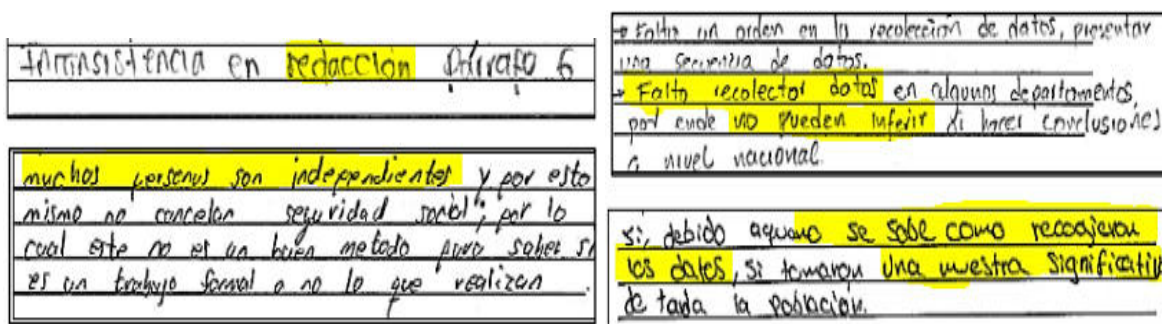 Inconsistencia en redacción Párrafo 6
muchas personas son independientes y por esto
mismo no cancelan seguridad social; por lo
cual este no es un buen metodo para saber si
es un trabajo formal o no lo que realizan.
→ Falto un orden en la recolección de datos, presentar
una secuencia de datos.
→ Falto recolector datos en algunos departamentos,
por ende no pueden inferir ni hacer conclusiones
a nivel nacional.
si, debido aque no se sabe como recogieron
los datos, si tomaron una muestra significativ
de toda la población.